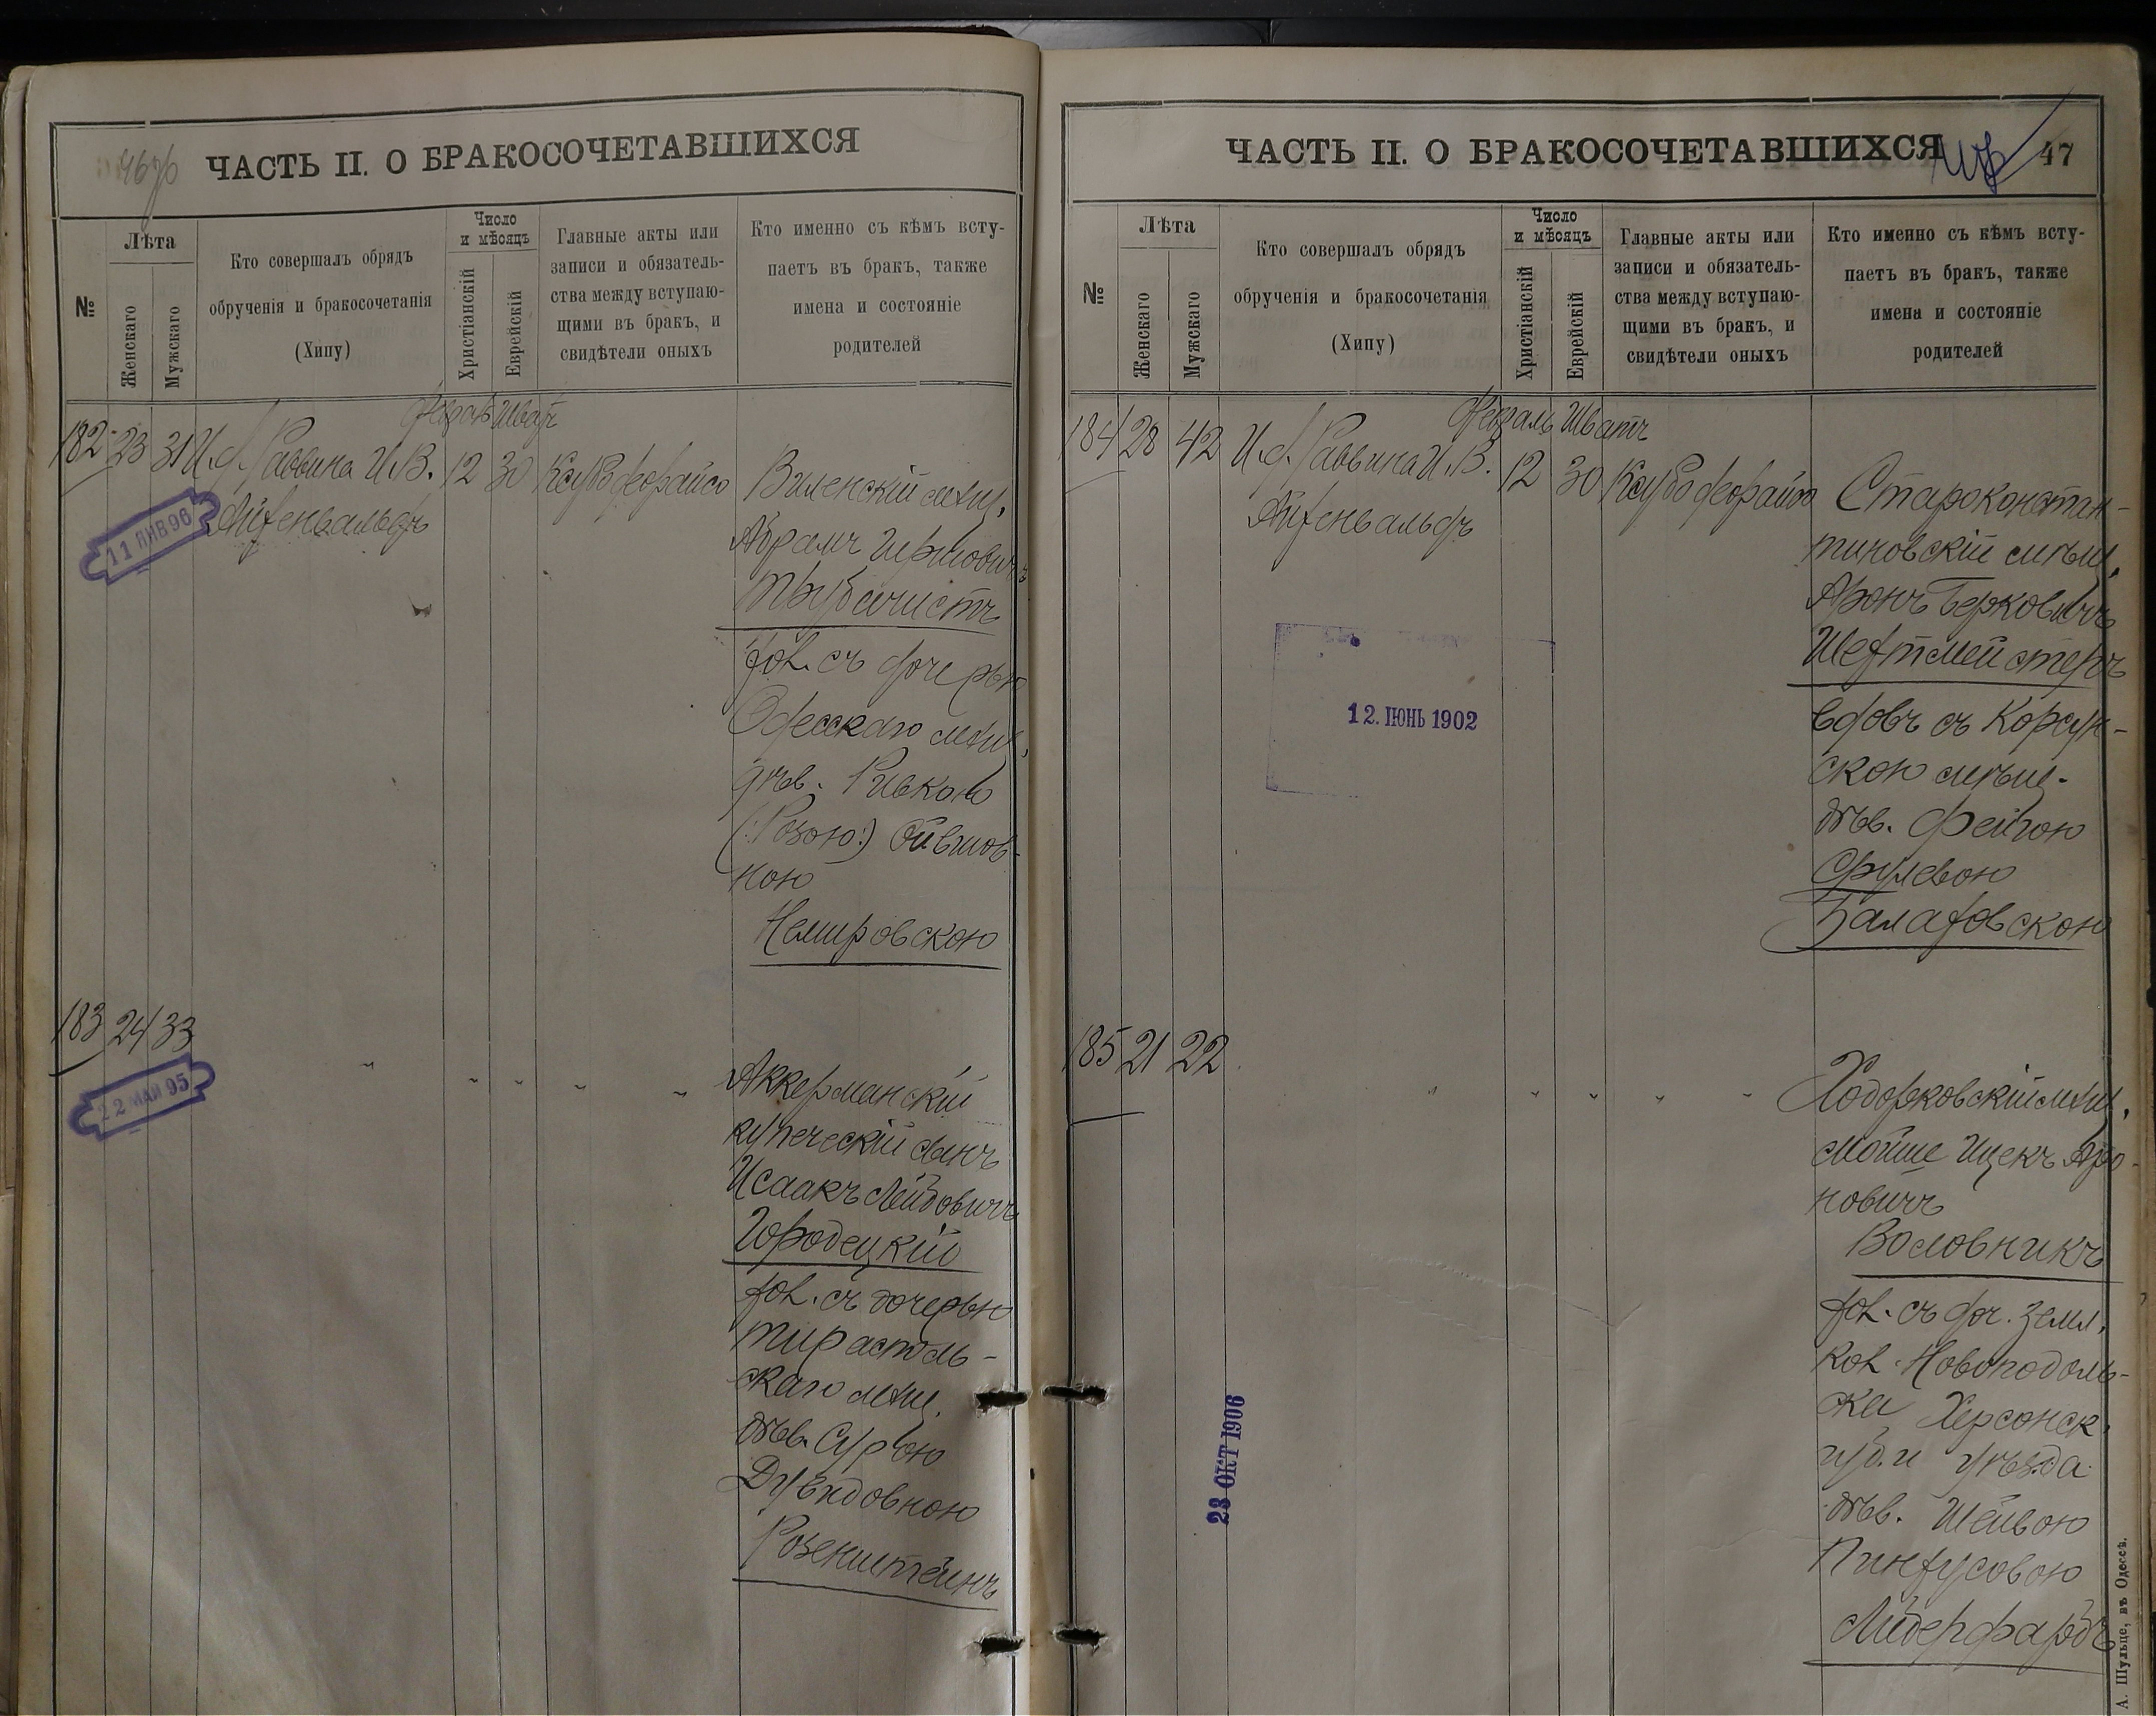 ЧАСТЬ II. О БРАКОСОЧЕТАВШИХСЯ
№
Лѣта
Женскаго
Мужскаго
Кто совершалъ обрядъ
обрученія и бракосочетанія
(Хипу)
Число
и мѣсяцъ
Христіанскій
Еврейскій
Главные акты или
записи и обязатель-
ства между вступаю-
щими въ бракъ, и
свидѣтели оныхъ
Кто именно съ кѣмъ всту-
паетъ въ бракъ, также
имена и состояніе
родителей
182 23 31 И.д. Раввина И.В. 12 30
Айзенвальдъ
11 ЯНВ 96
Виленскій мѣщ.
Абрамъ Гершовичъ
Трубочистъ
хол. съ дочерью
Одесскаго мѣщ.
дѣв. Ривкою
(:Розою:)
ною
Немировскою
183 24 33
22 МАЙ 95
Аккерманскій
купеческій сынъ
Исаакъ Лейбовичъ
Городецкій
хол. съ дочерью
тирасполь-
скаго мѣщ.
дѣв. Сурою
Дувидовною
Розенштейнъ
ЧАСТЬ II. О БРАКОСОЧЕТАВШИХСЯ
47
№
Лѣта
Женскаго
Мужскаго
Кто совершалъ обрядъ
обрученія и бракосочетанія
(Хипу)
Число
и мѣсяцъ
Христіанскій
Еврейскій
Главные акты или
записи и обязатель-
ства между вступаю-
щими въ бракъ, и
свидѣтели оныхъ
Кто именно съ кѣмъ всту-
паетъ въ бракъ, также
имена и состояніе
родителей
Февраль Шватъ
184 28 42 И.д. Раввина И.В. 12 30
Айзенвальдъ
12. ІЮНЬ 1902
Староконстан-
тиновскій мѣщ.
Аронъ Берковичъ
Шехтмейстеръ
вдовъ съ Корсун-
скою мѣщ.
дѣв. Фейгою
Срулевою
Балаховскою
185 21 22
23 ОКТ 1906
Ходорковскій мѣщ.
Мойше Ицекъ Аро-
новичъ
Воловникъ
хол. съ доч. земл.
кол. Новоподоль-
ска Херсонск.
губ. и уѣзда
дѣв. Шейвою
Пинхусовою
Лидерфарбъ
А. Шульце, въ Одессѣ.